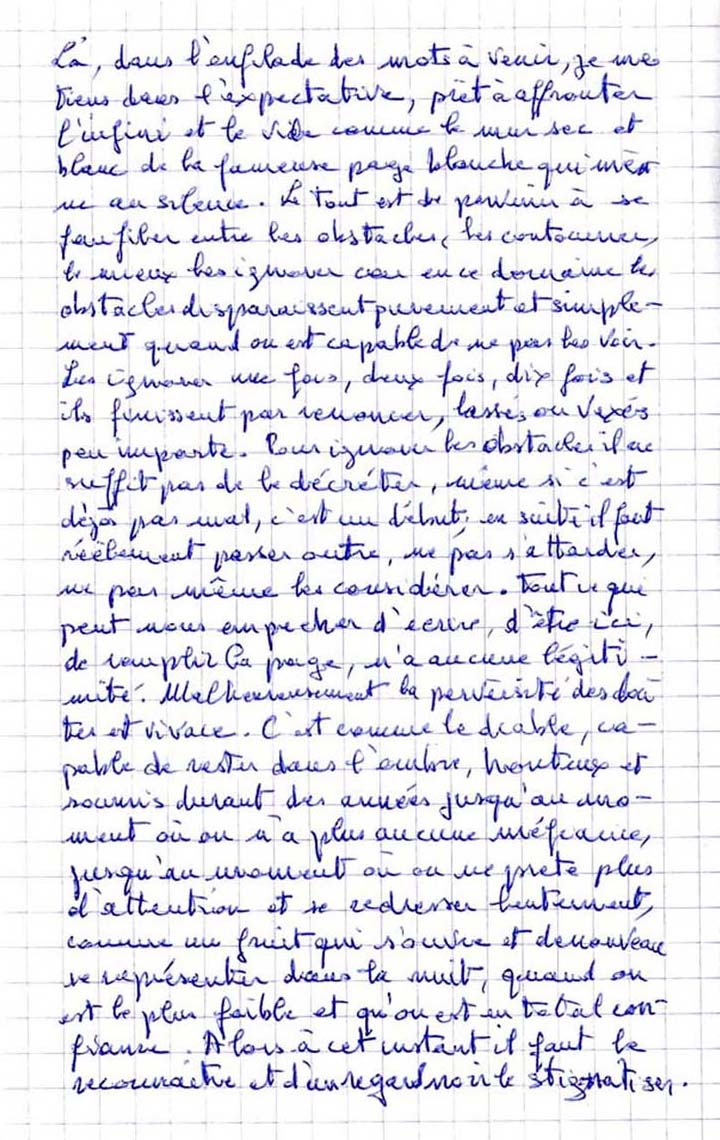 Là, dans l'enfilade des mots à venir, je me
tiens dans l'expectative, prêt à affronter
l'infini et le vide comme le mur sec et
blanc de la fameuse page blanche qui mèn
ne au silence. Le tout est de parvenir à se
faufiler entre les obstacles, les contourner,
le mieux les ignorer car en ce domaine les
obstacles disparaissent purement et simple-
ment quand on est capable de ne pas les voir.
Les ignorer une fois, deux fois, dix fois et
ils finissent par renoncer, lassés ou vexés
peu importe. Pour ignorer les obstacles il ne
suffit pas de le décréter, même si c'est
déjà pas mal, c'est un début; ensuite il faut
réellement passer outre, ne pas s'attarder,
ne pas même les considérer. Tout ce qui
peut nous empecher d'écrire, d'être ici,
de remplir la page, n'a aucune légiti-
mité. Malheureusement la perversité des dou
tes est vivace. C'est comme le diable, ca-
pable de rester dans l'ombre, honteux et
soumis durant des années jusqu'au mo-
ment où on n'a plus aucune méfiance,
jusqu'au moment où on ne prete plus
d'attention et se redresser lentement,
comme un fruit qui s'ouvre et de nouveau
se représenter dans la nuit, quand on
est le plus faible et qu'on est en total con-
fiance. Alors à cet instant il faut le
reconnaitre et d'un regard noir le stigmatiser.